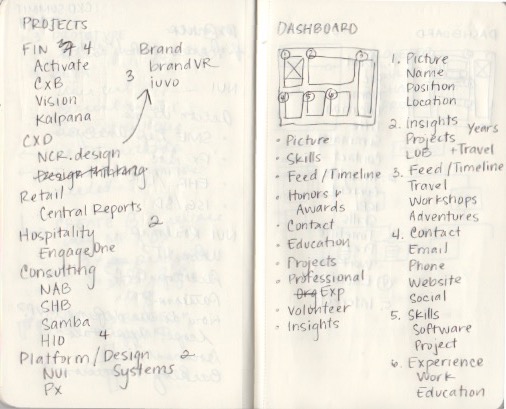 PROJECTS
FIN 4
Activate
CXB
Vision
Kalpana
CXD
NCR.design
Design thinking
Retail
Central Reports
Hospitality 2
Engage/One
Consulting
NAB
SHB
Samba
HIO 4
Platform / Design 2
NUI Systems
PX
Brand
brandVR
3 iuvo
DASHBOARD
1 2 3
4 5 6
• Picture
• Skills
• Feed / Timeline
• Honors +
Awards
• Contact
• Education
• Projects
• Professional
Org Exp
• Volunteer
• Insights
1. Picture
Name
Position
Location
2. Insights
Projects Years
LOB + Travel
3. Feed / Timeline
Travel
Workshops
Adventures
4. Contact
Email
Phone
Website
Social
5. Skills
Software
Project
6. Experience
Work
Education